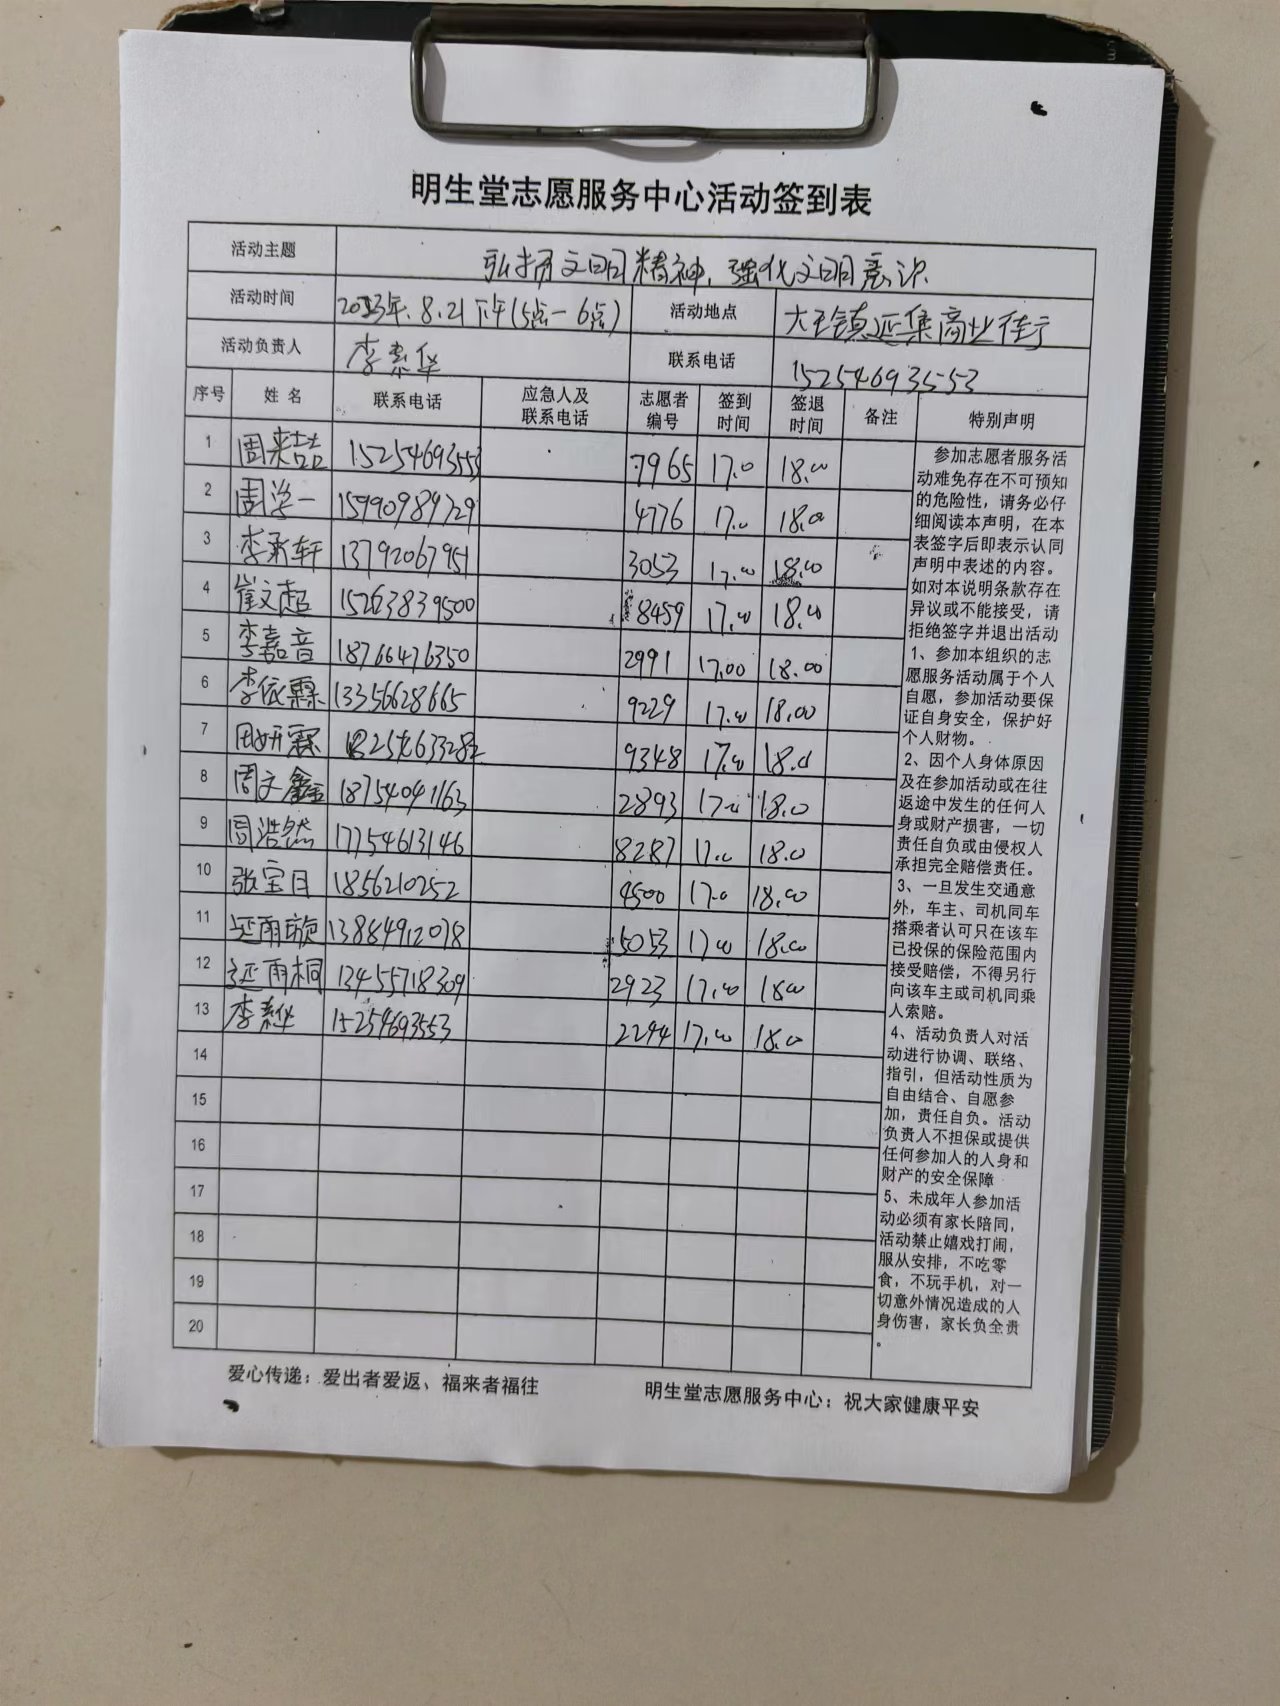 明生堂志愿服务中心活动签到表
活动主题 弘扬文明精神、强化文明意识
活动时间 2023年.8.21下午(5点-6点) 活动地点 大王镇延集商业街
活动负责人 李素华 联系电话 15254693553
序号 姓名 联系电话 应急人及联系电话 志愿者编号 签到时间 签退时间 备注 特别声明
1 周来喆 15254693553 7965 17.0 18.00
2 周学一 15990989729 4776 17.0 18.00
3 李承轩 13792067951 3053 17.00 18.00
4 崔文超 15263839500 8459 17.00 18.00
5 李嘉音 18766476350 2991 17.00 18.00
6 李依霖 13356628665 9229 17.00 18.00
7 周妍霖 9348 17.00 18.0
8 周文鑫 18754041163 2893 17.0 18.0
9 周浩然 17754613146 8287 17.0 18.0
10 张宝月 1856210252 4500 17.0 18.00
11 延雨璇 13884912078 5053 17.00 18.00
12 延雨桐 13455718309 2923 17.00 1800
13 李素华 15254693553 2294 17.00 18.0
14
15
16
17
18
19
20
参加志愿者服务活
动难免存在不可预知
的危险性，请务必仔
细阅读本声明，在本
表签字后即表示认同
声明中表述的内容。
如对本说明条款存在
异议或不能接受，请
拒绝签字并退出活动
1、参加本组织的志
愿服务活动属于个人
自愿，参加活动要保
证自身安全，保护好
个人财物。
2、因个人身体原因
及在参加活动或在往
返途中发生的任何人
身或财产损害，一切
责任自负或由侵权人
承担完全赔偿责任。
3、一旦发生交通意
外，车主、司机同车
搭乘者认可只在该车
已投保的保险范围内
接受赔偿，不得另行
向该车主或司机同乘
人索赔。
4、活动负责人对活
动进行协调、联络、
指引，但活动性质为
自由结合、自愿参
加，责任自负。活动
负责人不担保或提供
任何参加人的人身和
财产的安全保障
5、未成年人参加活
动必须有家长陪同，
活动禁止嬉戏打闹，
服从安排，不吃零
食，不玩手机，对一
切意外情况造成的人
身伤害，家长负全责
。
爱心传递：爱出者爱返、福来者福往 明生堂志愿服务中心：祝大家健康平安